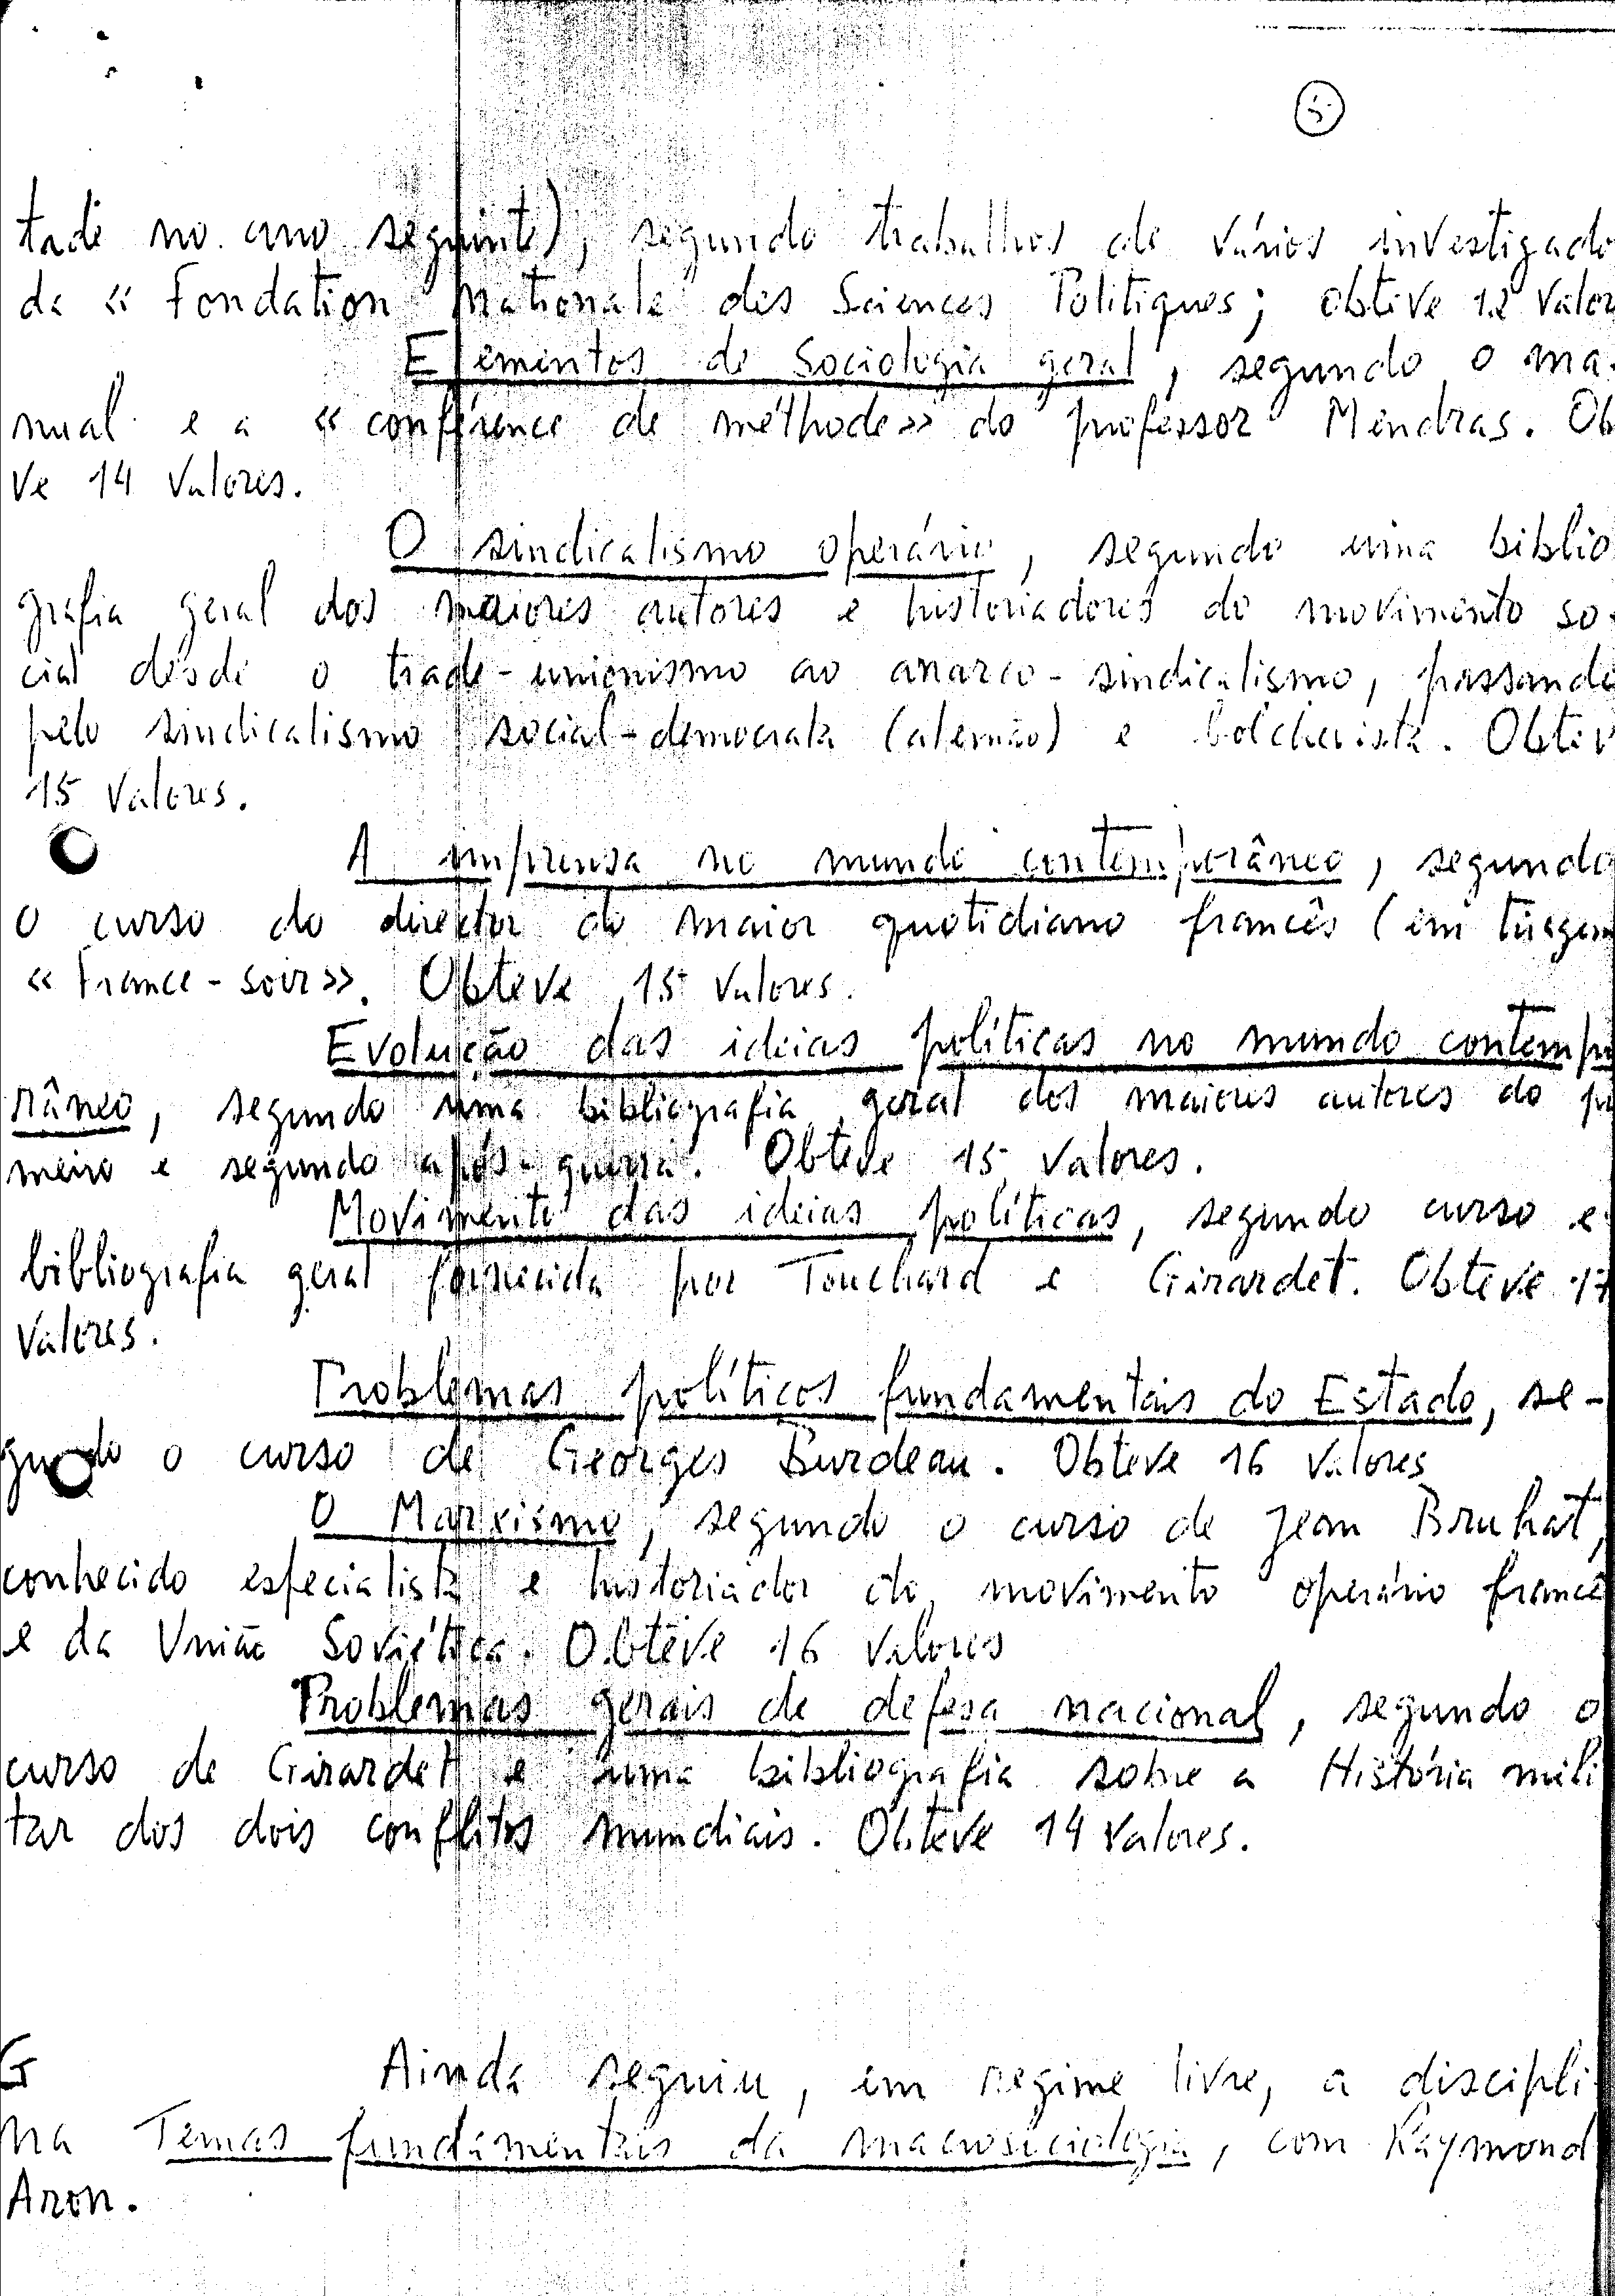 5
tade no ano seguinte), segundo trabalhos de vários investigado
da « Fondation Nationale des Sciences Politiques; obteve 12 valor
Elementos de Sociologia geral, segundo o ma-
nual e a « conférence de méthode» do professor Mendras. Ob
ve 14 valores.
O sindicalismo operário, segundo uma biblio
grafia geral dos maiores autores e historiadores do movimento so-
cial desde o trade-unionismo ao anarco-sindicalismo, passando
pelo sindicalismo social-democrata (alemão) e bolchevista. Obtev
15 valores.
A imprensa no mundo contemporâneo, segundo
o curso do director do maior quotidiano francês (em tiragem
« France-soir». Obteve 15 valores.
Evolução das ideias políticas no mundo contempo
râneo, segundo uma bibliografia geral dos maiores autores do pri
meiro e segundo após-guerra. Obteve 15 valores.
Movimento das ideias políticas, segundo curso e
bibliografia geral fornecida por Touchard e Girardet. Obteve 17
valores.
Problemas políticos fundamentais do Estado, se-
gundo o curso de Georges Burdeau. Obteve 16 valores
O Marxismo, segundo o curso de Jean Bruhat,
conhecido especialista e historiador do movimento operário francê
e da União Soviética. Obteve 16 valores
Problemas gerais de defesa nacional, segundo o
curso de Girardet e uma bibliografia sobre a História mili
tar dos dois conflitos mundiais. Obteve 14 valores.
G Ainda seguiu, em regime livre, a discipli
na Temas fundamentais da macrosociologia, com Raymond
Aron.